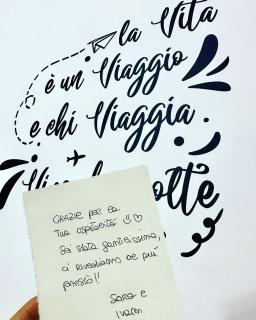 la Vita
è un Viaggio
e chi Viaggia
Vi
olte
GRAZIE PER LA
TUA OSPITALITÀ
Sei stata gentilissima,
ci rivediamo al più
presto!!
Sara e
Ivan